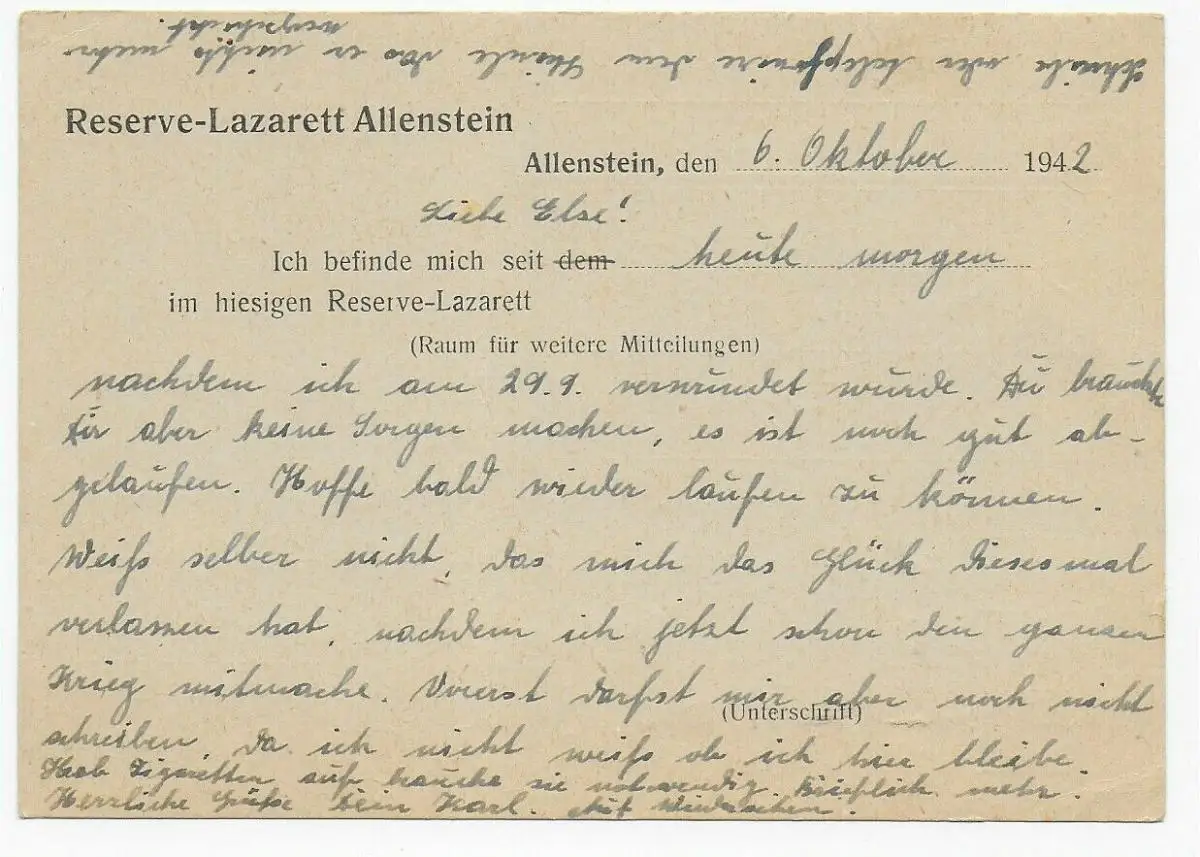 Schreibe oder telephoniere dem Heinle das er nichts mehr
wegschickt.
Reserve-Lazarett Allenstein
Allenstein, den 6. Oktober 1942
Liebe Else!
Ich befinde mich seit dem heute morgen
im hiesigen Reserve-Lazarett
(Raum für weitere Mitteilungen)
nachdem ich am 29.9. verwundet wurde. Du brauchst
Dir aber keine Sorgen machen, es ist noch gut ab-
gelaufen. Hoffe bald wieder laufen zu können.
Weiß selber nicht, das mich das Glück diesesmal
verlassen hat, nachdem ich jetzt schon den ganzen
Krieg mitmache. Vorerst darfst mir aber noch nicht
(Unterschrift)
schreiben, da ich nicht weiß ob ich hier bleibe.
Heb Zigaretten auf brauche sie notwendig. Brieflich mehr.
Herzliche Grüße Dein Karl. Auf Wiedersehen.